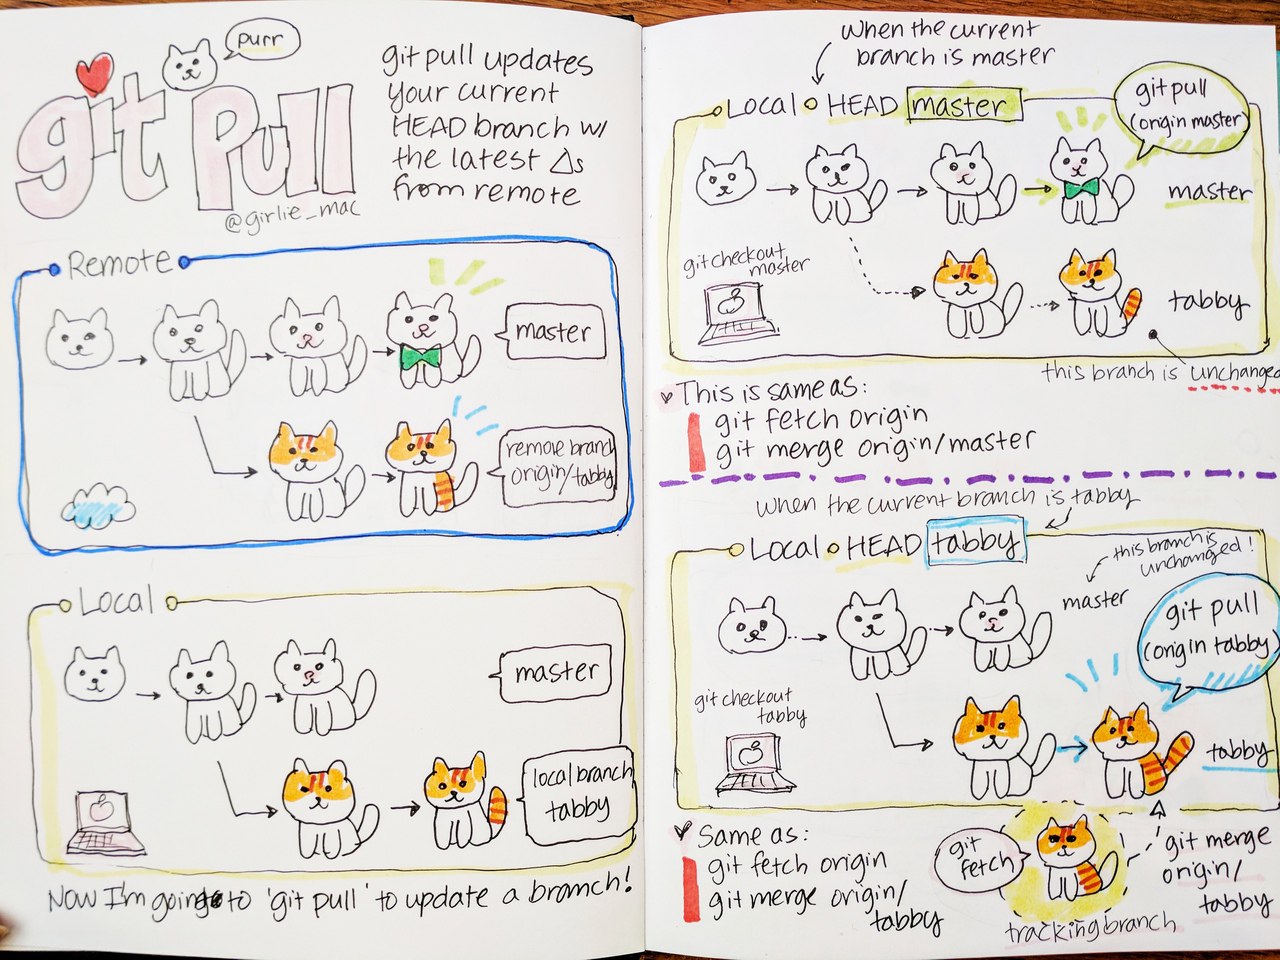 git pull
purr
@girlie_mac
git pull updates
your current
HEAD branch w/
the latest Δs
from remote
Remote
master
remote branch
origin/tabby
Local
master
local branch
tabby
Now I'm going to 'git pull' to update a branch!
When the current
branch is master
Local HEAD master
git pull
(origin master)
master
git checkout
master
tabby
this branch is unchanged
This is same as:
git fetch origin
git merge origin/master
when the current branch is tabby
Local HEAD tabby
this branch is
unchanged!
master
git pull
(origin tabby)
git checkout
tabby
tabby
Same as:
git fetch origin
git merge origin/
tabby
git
fetch
tracking branch
git merge
origin/
tabby